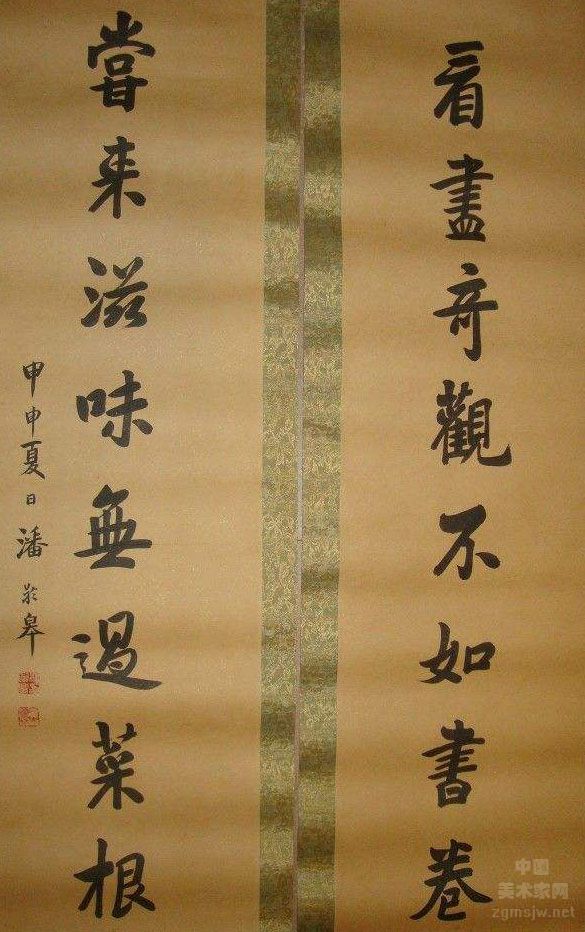 看盡奇觀不如書卷
嘗来滋味無過菜根
甲申夏日潘龄皋
中国
美术家网
zgmsjw.net